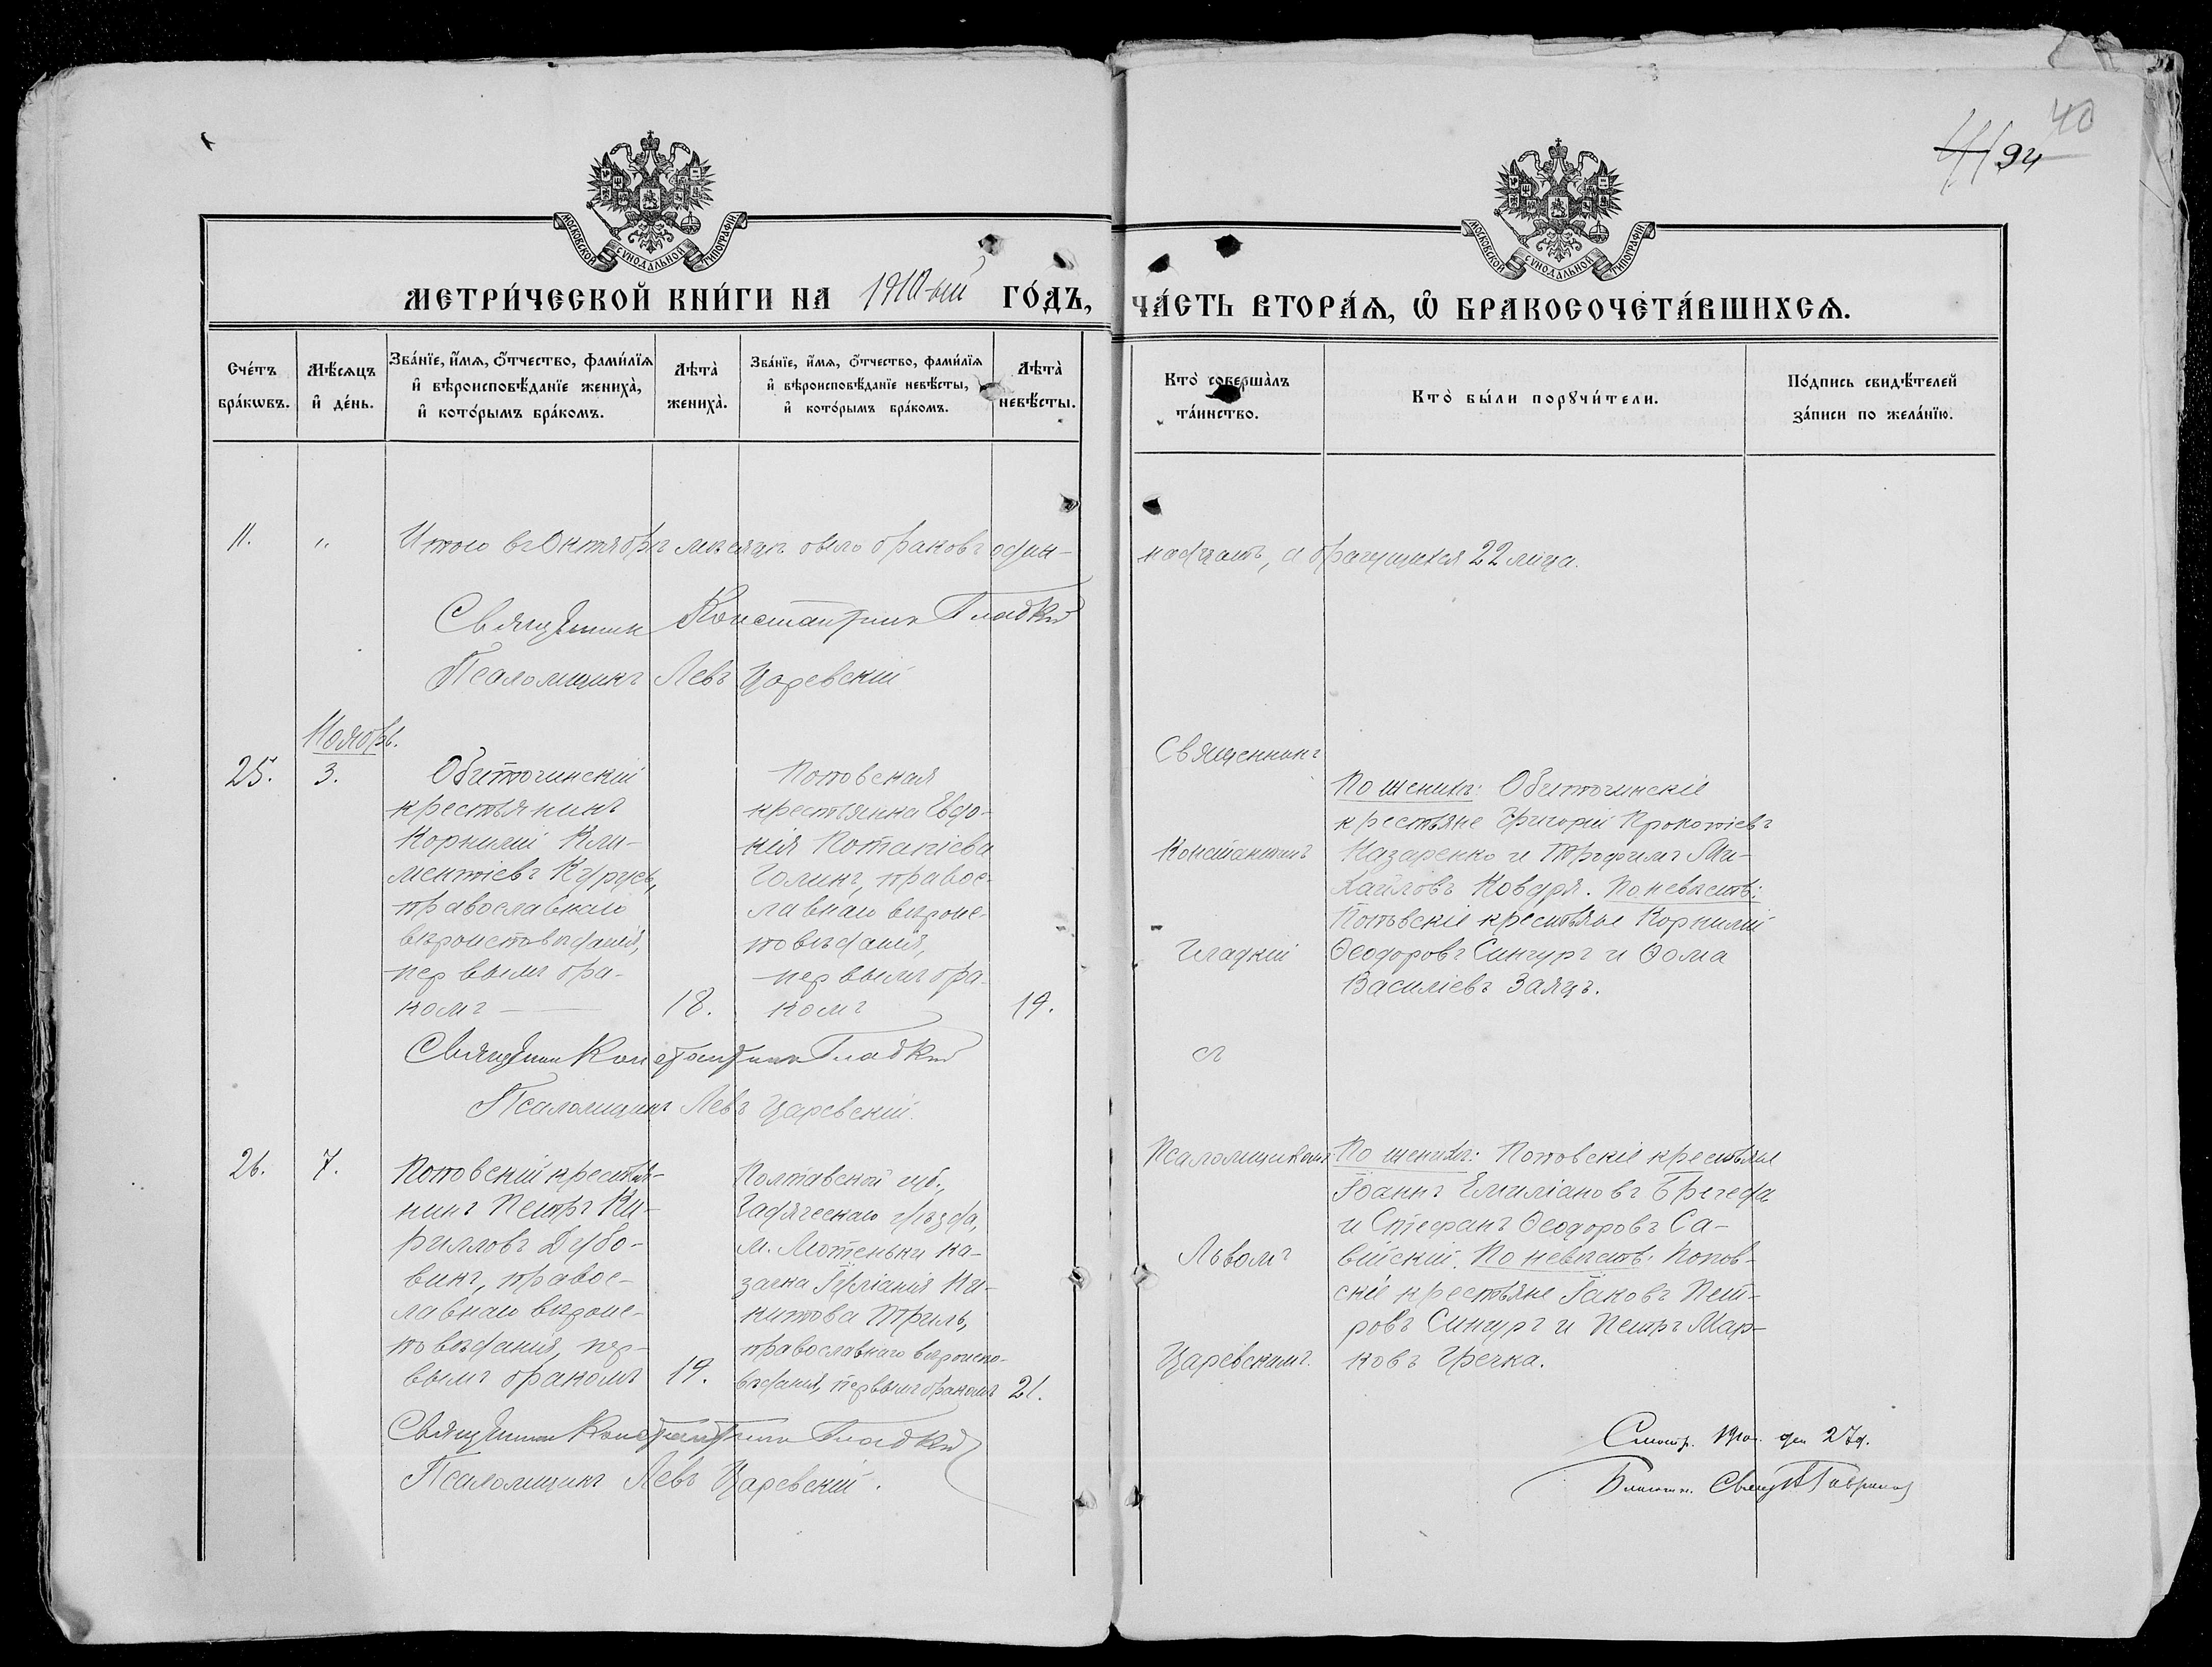 40
41 94
МОСКОВСКОЙ СѴНОДАЛЬНОЙ ТИПОГРАФІИ
МОСКОВСКОЙ СѴНОДАЛЬНОЙ ТИПОГРАФІИ
МЕТРИ́ЧЕСКОЙ КНИ́ГИ НА 1910-ый ГО́ДЪ, ЧА́СТЬ ВТОРА́Ѧ, Ѽ БРАКОСОЧЕТА́ВШИХСѦ.
Сче́тъ бра́кѡвъ.
Мѣ́сѧцъ и҆ де́нь.
Зва́нїе, и҆́мѧ, ѻ҆́тчество, фами́лїѧ
и҆ вѣроисповѣ́данїе жениха̀,
и҆ кото́рымъ бра́комъ.
Лѣта̀ жениха̀.
Зва́нїе, и҆́мѧ, ѻ҆́тчество, фами́лїѧ
и҆ вѣроисповѣ́данїе невѣ́сты,
и҆ кото́рымъ бра́комъ.
Лѣта̀ невѣ́сты.
Кто̀ соверша̀лъ
та́инство.
Кто̀ бы́ли порꙋчи́тели.
По́дпись свидѣ́телей
за́писи по жела́нїю.
11. " Итого въ Октябрѣ мѣсяцѣ было браковъ один-
надцать, а брачущихся 22 лица.
Священник Константин Гладкий
Псаломщикъ Левъ Царевскій
Ноябрь.
25. 3.
Обиточинскій
крестьянинъ
Корнилій Кли-
ментіевъ Курусь,
православнаго
вѣроисповѣданія,
первымъ бра-
комъ 18.
Поповская
крестьянка Евдо-
кія Потапіева
Голикъ, правос-
лавнаго вѣроис-
повѣданія,
первымъ бра-
комъ 19.
Священникъ
Константинъ
Гладкій
съ
Псаломщикомъ
Львомъ
Царевскимъ.
По женихѣ: Обиточинскіе
крестьяне Григорій Прокопіевъ
Назаренко и Трофимъ Ми-
хайловъ Ковдря. По невѣстѣ:
Поповскіе крестьяне Корнилій
Ѳеодоровъ Сингуръ и Ѳома
Василіевъ Заяцъ.
Священник Константин Гладкий
Псаломщикъ Левъ Царевскій.
26. 7.
Поповскій крестья-
нинъ Петръ Ки-
рилловъ Дубо-
викъ, правос-
лавнаго вѣроис-
повѣданія, пер-
вымъ бракомъ 19.
Полтавской губ.,
Гадяческаго уѣзда,
м. Лютеньки ка-
зачка Іуліанія Ни-
китова Триль,
православнаго вѣроиспо-
вѣданія, первымъ бракомъ 21.
По женихѣ: Поповскіе крестьяне
Іоаннъ Емиліановъ Брегеда
и Стефанъ Ѳеодоровъ Са-
війскій. По невѣстѣ: Попов-
скіе крестьяне Іаковъ Пет-
ровъ Сингуръ и Петръ Мар-
ковъ Гречка.
Священник Константин Гладкий
Псаломщикъ Левъ Царевскій.
1910 дек 27 д.
Свящ